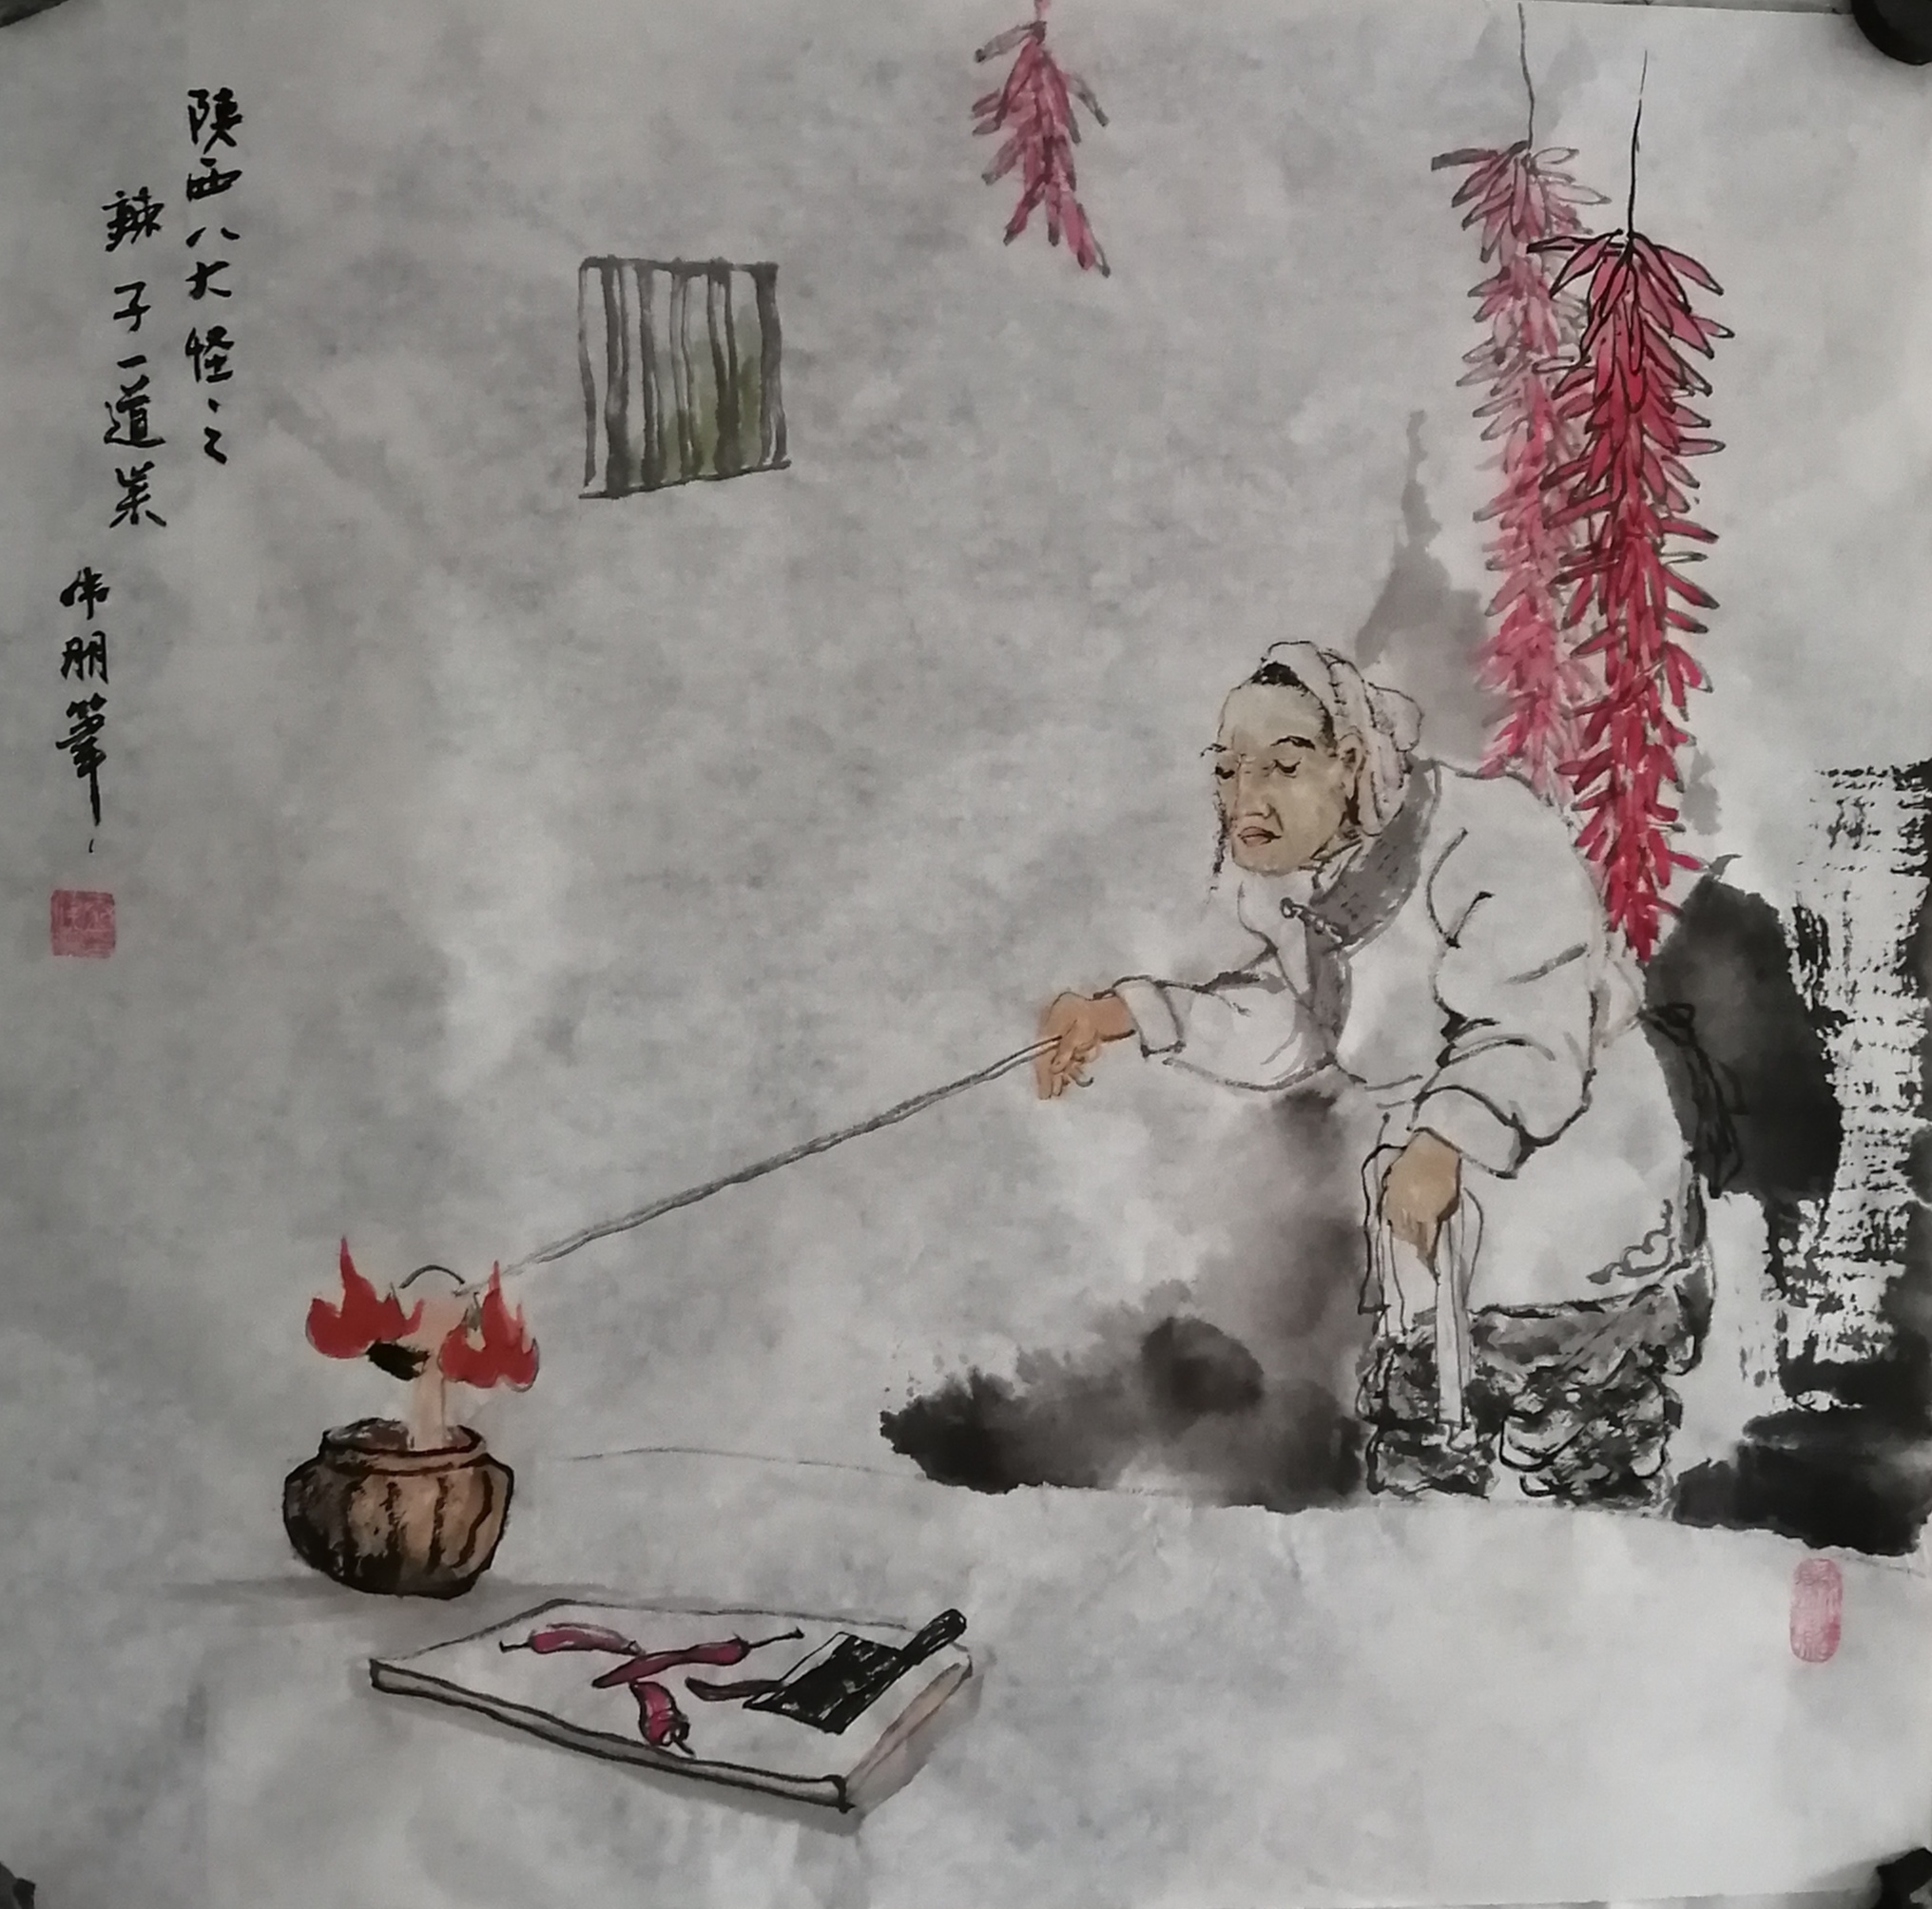 陕西八大怪之
辣子一道菜
伟朋笔